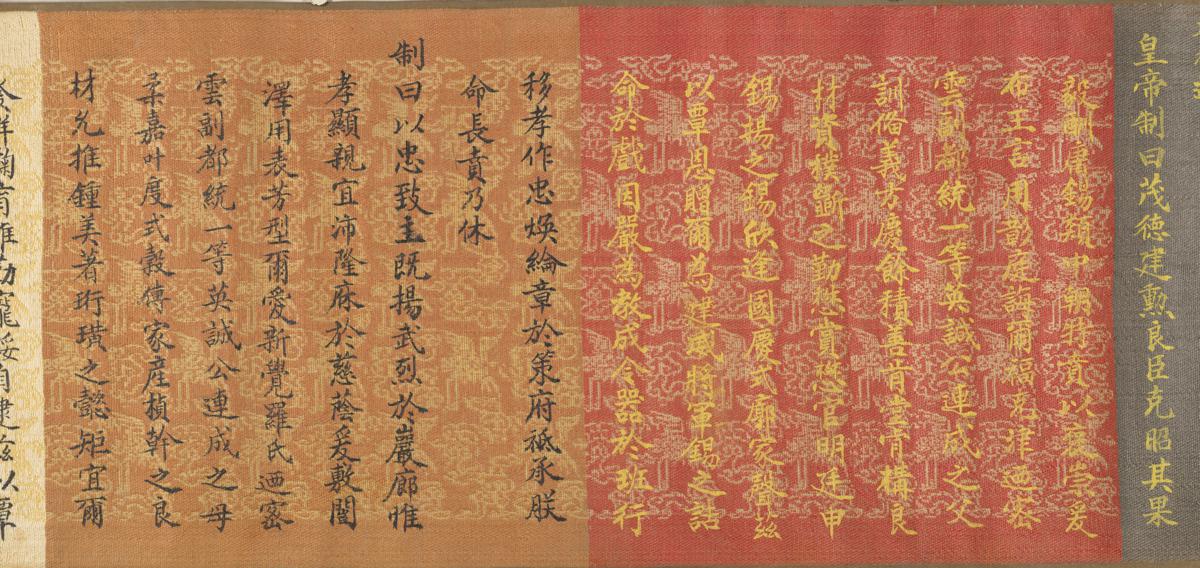 皇帝制曰茂德建勲良臣克昭其果
毅酬庸錫類中朝特賁以褒崇爰
布王言用彰庭誨爾福克津迺密
雲副都統一等英誠公連成之父
訓脩義方慶餘積善昔堂肯構良
材資樸斵之勤懋賞懋官明廷申
錫揚之錫欣逢國慶式廓家聲兹
以覃恩贈爾為建威將軍錫之誥
命於戲因嚴為教成令器於班行
移孝作忠煥綸章於策府祗承朕
命長賁乃休
制曰以忠致主既揚武烈於巖廊惟
孝顯親宜沛隆庥於慈蔭爰敷閫
澤用表芳型爾愛新覺羅氏迺密
雲副都統一等英誠公連成之母
柔嘉叶度式榖傳家産楨幹之良
材允推鍾美著珩璜之懿矩宜爾
發祥鞠育雄劬寵綏自逮兹以覃